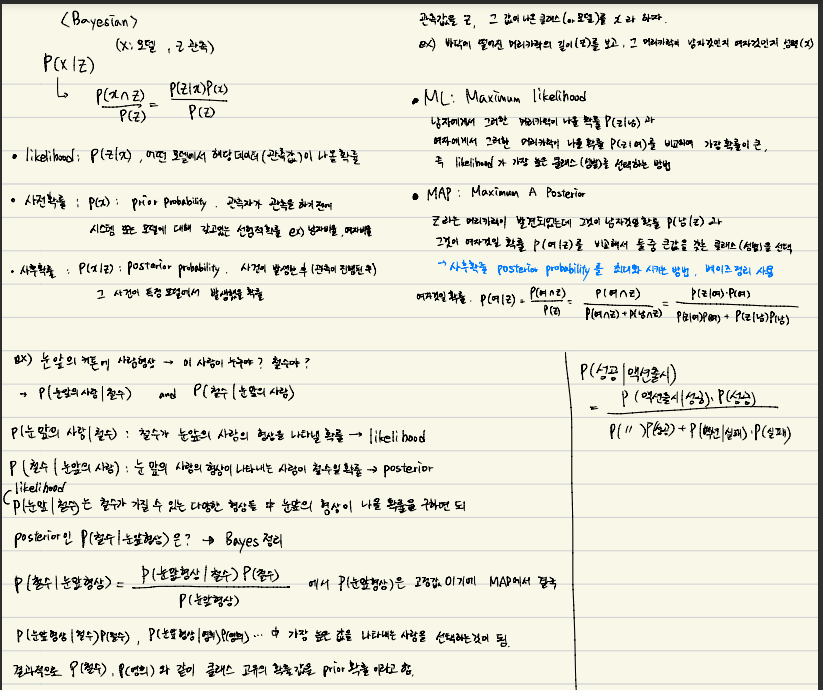 <Bayesian>
(x: 모델, z 관측)
P(x|z)
↳ P(x∩z)/P(z) = P(z|x)P(x)/P(z)
• likelihood: P(z|x), 어떤 모델에서 해당 데이터(관측값)이 나올 확률
• 사전확률 : P(x) : prior probability. 관측자가 관측을 하기 전에
시스템 또는 모델에 대해 갖고있는 선험적 확률 ex) 남자비율, 여자비율
• 사후확률 : P(x|z) : posterior probability. 사건이 발생한 후 (관측이 진행된 후)
그 사건이 특정 모델에서 발생했을 확률
관측값을 z, 그 값이 나온 클래스(or 모델)를 x라 하자.
ex) 바닥에 떨어진 머리카락의 길이(z)를 보고, 그 머리카락이 남자것인지 여자것인지 성별(x)
• ML: Maximum likelihood
남자에게서 그러한 머리카락이 나올 확률 P(z|남)과
여자에게서 그러한 머리카락이 나올 확률 P(z|여)를 비교하여 가장 확률이 큰,
즉 likelihood가 가장 높은 클래스(성별)를 선택하는 방법
• MAP: Maximum A Posterior
z라는 머리카락이 발견되었는데 그것이 남자것일 확률 P(남|z)과
그것이 여자것일 확률 P(여|z)를 비교해서 둘중 큰값을 갖는 클래스(성별)을 선택
→ 사후확률 posterior probability를 최대화 시키는 방법, 베이즈 정리 사용
여자것일 확률. P(여|z) = P(여∩z)/P(z) = P(여∩z)/(P(여∩z)+P(남∩z)) = P(z|여)·P(여)/(P(z|여)P(여) + P(z|남)P(남))
ex) 눈앞의 커튼에 사람형상 → 이 사람이 누구야? 철수야?
→ P(눈앞의 사람|철수) and P(철수|눈앞의 사람)
P(눈앞의 사람|철수) : 철수가 눈앞의 사람의 형상을 나타낼 확률 → likelihood
P(철수|눈앞의 사람) : 눈 앞의 사람의 형상이 나타내는 사람이 철수일 확률 → posterior
likelihood
P(눈앞|철수)는 철수가 가질 수 있는 다양한 형상들 中 눈앞의 형상이 나올 확률을 구하면 되
posterior인 P(철수|눈앞형상)은? → Bayes 정리
P(철수|눈앞형상) = P(눈앞형상|철수)P(철수)/P(눈앞형상) 에서 P(눈앞형상)은 고정값이기에 MAP에서 결국
P(눈앞형상|철수)P(철수), P(눈앞형상|영희)P(영희) … 中 가장 높은 값을 나타내는 사람을 선택하는것이 됨.
결과적으로 P(철수), P(영희)와 같이 클래스 고유의 확률값을 prior 확률이라고 함.
P(성공|액션출시)
= P(액션출시|성공)·P(성공)/(P(〃)P(성공) + P(액션|실패)·P(실패))